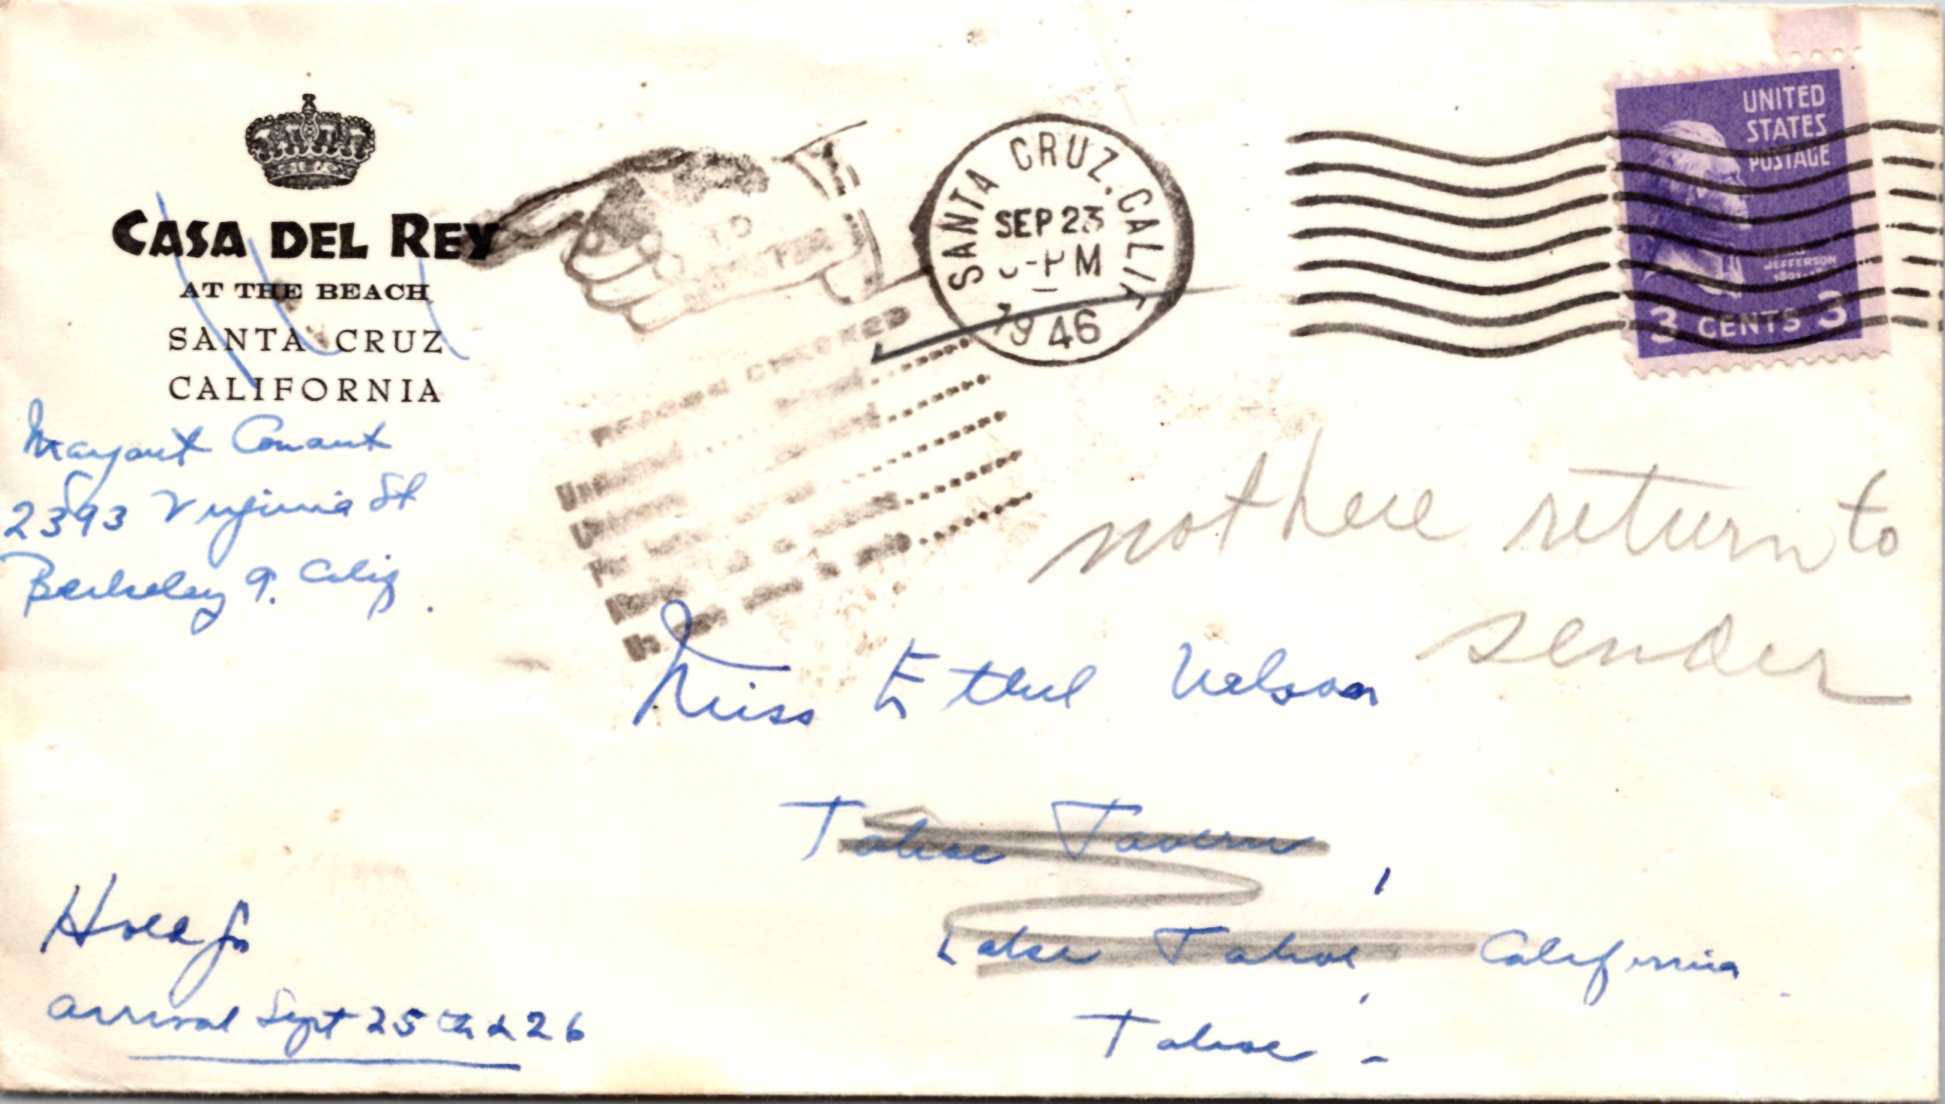 CASA DEL REY
AT THE BEACH
SANTA CRUZ
CALIFORNIA
Margaret Conant
2393 Virginia St
Berkeley 9. Calif.
TO
SANTA CRUZ, CALIF.
SEP 23
PM
1946
UNITED
STATES
POSTAGE
JEFFERSON
3 CENTS 3
not here return to
sender
Miss Ethel Nelson
Tahoe Tavern,
Lake Tahoe, California
Tahoe -
Hold for
arrival Sept 25th & 26